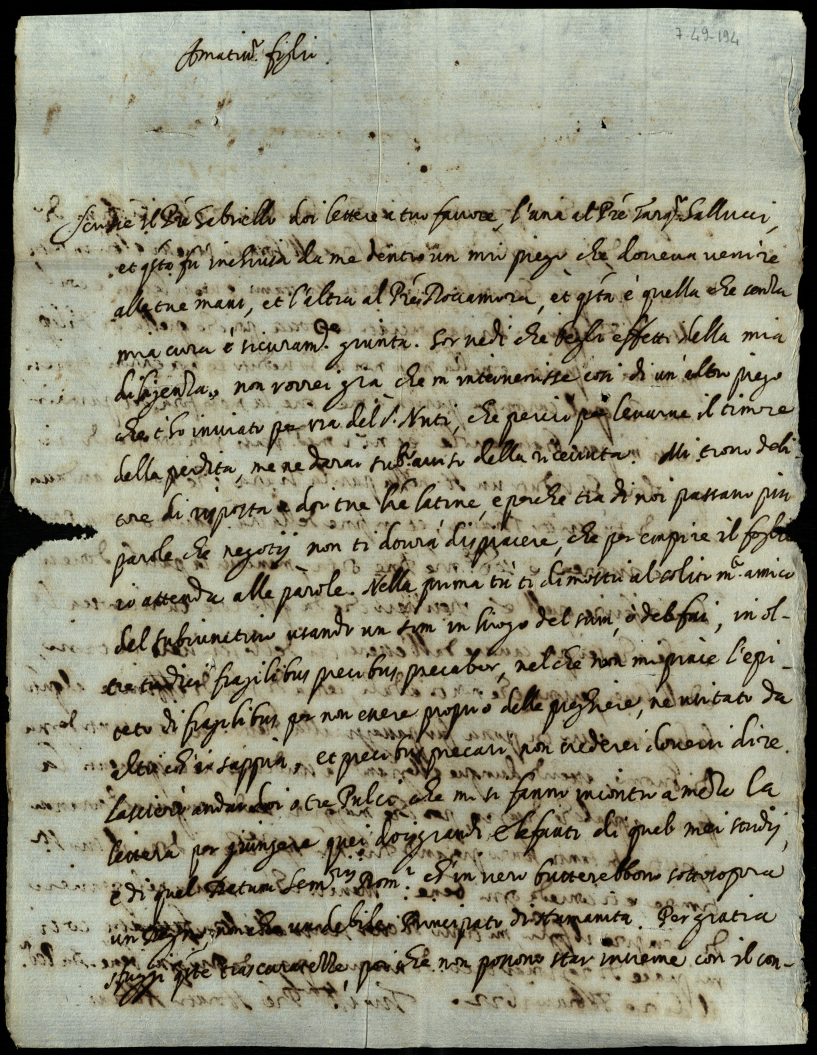 7-49-194
Amatiss.º figlio.
Scrisse il Pré Gabrielli doi lettere a tuo favore, l'una al Pré Tarq.º Gallucci,
et q̃sta fù inchiusa da me dentro un mio piego che doveva venire
alle tue mani, et l'altra al Pré Roccamora, et q̃sta è quella che senza
mia cura è sicuram.te giunta. Hor vedi che begli effetti della mia
diligenza, non vorrei già che m'intervenisse così di un'altro piego
che t'ho inviato per via del S. Nuti, che perciò per levarme il timore
della perdita, me ne darai sub.º aviso della ricevuta. Mi trovo debi-
tore di risposta a doi tue lr̃e latine, e perche tra di noi passano più
parole che negotij non ti dovrà dispiacere, che per empire il foglio
io attenda alle parole. Nella prima tù ti dimostri al solito m.º amico
del subiuntivo usando un sim in luogo del sum, ò del fui, in ol-
tre tu dici fragilibus precibus precabor, nel che non mi piace l'epi-
teto di fragilibus per non essere proprio delle preghiere, ne usitato da
altri ch'io sappia, et precibus precari non crederei doversi dire.
Lascierò andar doi o tre Pulci, che mi si fanno incontro a mezza la
lettera per giungere quei doi grandi Elefanti di quel mei studij,
e di quel Rom.i ch'in vero butterebbono sottosopra
un non che un debile Principato di humanità. Per gratia
sfuggi q̃ste poi che non possono star insieme con il con-